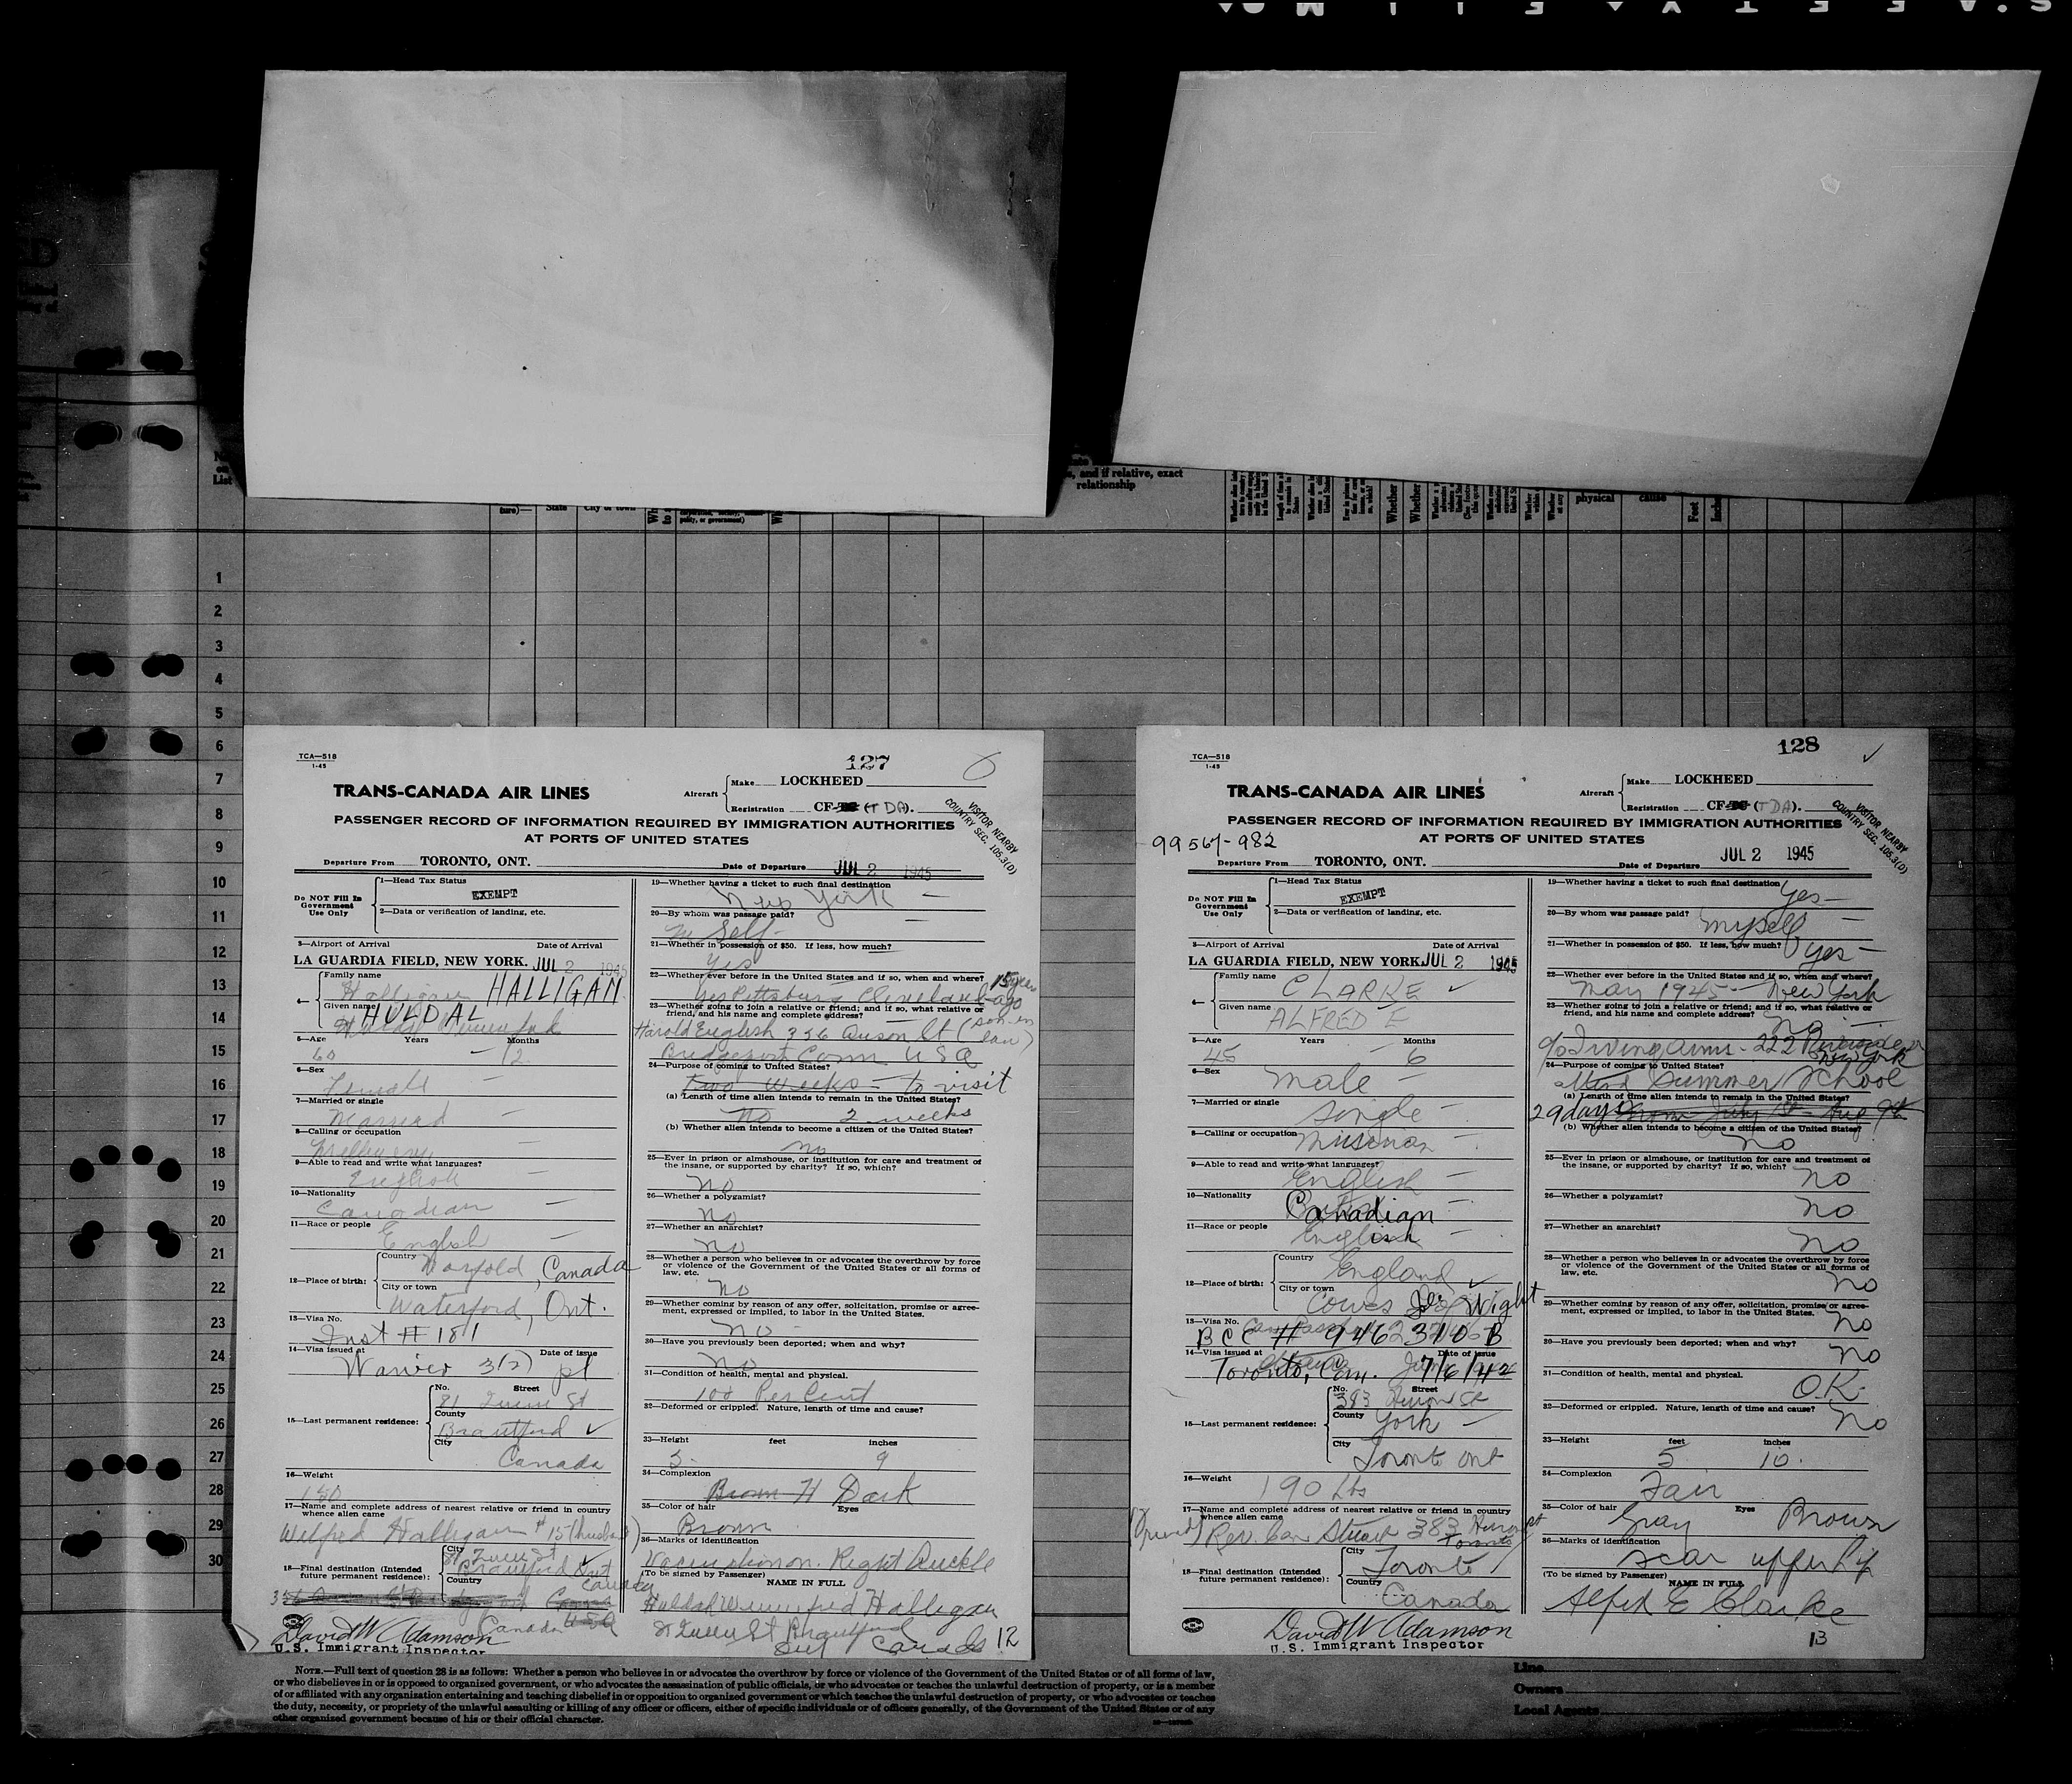 List
relationship
, and if relative, exact
physical
cause
Feet
State
1
2
3
4
5
6
7
8
9
10
11
12
13
14
15
16
17
18
19
20
21
22
23
24
25
26
27
28
29
30
TCA—518
1-45
127
TRANS-CANADA AIR LINES
Aircraft
Make LOCKHEED
Registration CF- (TDA).
VISITOR NEARBY
COUNTRY SEC. 105.3(0)
PASSENGER RECORD OF INFORMATION REQUIRED BY IMMIGRATION AUTHORITIES
AT PORTS OF UNITED STATES
Departure From TORONTO, ONT. Date of Departure JUL 2 1945
Do NOT Fill In
Government
Use Only
1—Head Tax Status
EXEMPT
2—Data or verification of landing, etc.
3—Airport of Arrival Date of Arrival
LA GUARDIA FIELD, NEW YORK. JUL 2 1945
4— Family name
Halligan HALLIGAN
Given name HULDAL
5—Age Years Months
60 - 2
6—Sex
Female
7—Married or single
Married
8—Calling or occupation
9—Able to read and write what languages?
English
10—Nationality
Canadian
11—Race or people
English
12—Place of birth:
Country
Canada
City or town
Waterford, Ont.
13—Visa No.
Inst # 1811
14—Visa issued at Date of issue
Waiver 3(2) pl
15—Last permanent residence:
No. Street
81 St
County
Brantford
City
Canada
16—Weight
180
17—Name and complete address of nearest relative or friend in country
whence alien came
Wilfred Halligan #15 (husband)
18—Final destination (Intended
future permanent residence):
City
Brantford Ont
Country
Canada
Canada USA
David W Adamson
U.S. Immigrant Inspector
19—Whether having a ticket to such final destination
New York
20—By whom was passage paid?
Self
21—Whether in possession of $50. If less, how much?
Yes
22—Whether ever before in the United States and if so, when and where? 15 years
yes Pittsburg Cleveland ago
23—Whether going to join a relative or friend; and if so, what relative or
friend, and his name and complete address?
Harold English 356 St (son in law)
Bridgeport Conn USA
24—Purpose of coming to United States?
two weeks - to visit
(a) Length of time alien intends to remain in the United States?
no 2 weeks
(b) Whether alien intends to become a citizen of the United States?
no
25—Ever in prison or almshouse, or institution for care and treatment of
the insane, or supported by charity? If so, which?
no
26—Whether a polygamist?
no
27—Whether an anarchist?
no
28—Whether a person who believes in or advocates the overthrow by force
or violence of the Government of the United States or all forms of
law, etc.
no
29—Whether coming by reason of any offer, solicitation, promise or agree-
ment, expressed or implied, to labor in the United States.
no
30—Have you previously been deported; when and why?
no
31—Condition of health, mental and physical.
100 Per Cent
32—Deformed or crippled. Nature, length of time and cause?
33—Height feet inches
5 9
34—Complexion
Brown H Dark
35—Color of hair Eyes
Brown
36—Marks of identification
Right
(To be signed by Passenger) NAME IN FULL
Huldah Winnifred Halligan
St Brantford
Ont Canada 12
TCA—518
1-45
128
TRANS-CANADA AIR LINES
Aircraft
Make LOCKHEED
Registration CF- (TDA).
VISITOR NEARBY
COUNTRY SEC. 105.3(0)
PASSENGER RECORD OF INFORMATION REQUIRED BY IMMIGRATION AUTHORITIES
AT PORTS OF UNITED STATES
99567-982
Departure From TORONTO, ONT. Date of Departure JUL 2 1945
Do NOT Fill In
Government
Use Only
1—Head Tax Status
EXEMPT
2—Data or verification of landing, etc.
3—Airport of Arrival Date of Arrival
LA GUARDIA FIELD, NEW YORK JUL 2 1945
4— Family name
CLARKE
Given name
ALFRED E
5—Age Years Months
45 - 6
6—Sex
male
7—Married or single
single
8—Calling or occupation
Musician
9—Able to read and write what languages?
English
10—Nationality
Canadian
11—Race or people
English
12—Place of birth:
Country
England
City or town
Cowes Isle of Wight
13—Visa No.
BCC # 9462310-B
14—Visa issued at Date of issue
Toronto, Can. 7/6/42
15—Last permanent residence:
No. Street
383 Huron St
County
York
City
Toronto Ont
16—Weight
190 Lbs
17—Name and complete address of nearest relative or friend in country
whence alien came
(Friend) Rev. Stuart 383 Huron St
Toronto
18—Final destination (Intended
future permanent residence):
City
Toronto
Country
Canada
David W Adamson
U.S. Immigrant Inspector
19—Whether having a ticket to such final destination
yes
20—By whom was passage paid?
myself
21—Whether in possession of $50. If less, how much?
yes
22—Whether ever before in the United States and if so, when and where?
May 1945 - New York
23—Whether going to join a relative or friend; and if so, what relative or
friend, and his name and complete address?
no
c/o Irving - 222 Riverside Dr
New York
24—Purpose of coming to United States?
attend Summer School
(a) Length of time alien intends to remain in the United States?
29 days from July 1st - Aug 9th
(b) Whether alien intends to become a citizen of the United States?
no
25—Ever in prison or almshouse, or institution for care and treatment of
the insane, or supported by charity? If so, which?
no
26—Whether a polygamist?
no
27—Whether an anarchist?
no
28—Whether a person who believes in or advocates the overthrow by force
or violence of the Government of the United States or all forms of
law, etc.
no
29—Whether coming by reason of any offer, solicitation, promise or agree-
ment, expressed or implied, to labor in the United States.
no
30—Have you previously been deported; when and why?
no
31—Condition of health, mental and physical.
O.K.
32—Deformed or crippled. Nature, length of time and cause?
no
33—Height feet inches
5 10
34—Complexion
Fair
35—Color of hair Eyes
Gray Brown
36—Marks of identification
scar upper lip
(To be signed by Passenger) NAME IN FULL
Alfred E Clarke
13
NOTE.—Full text of question 28 is as follows: Whether a person who believes in or advocates the overthrow by force or violence of the Government of the United States or of all forms of law,
or who disbelieves in or is opposed to organized government, or who advocates the assassination of public officials, or who advocates or teaches the unlawful destruction of property, or is a member
of or affiliated with any organization entertaining and teaching disbelief in or opposition to organized government or which teaches the unlawful destruction of property, or who advocates or teaches
the duty, necessity, or propriety of the unlawful assaulting or killing of any officer or officers, either of specific individuals or of officers generally, of the Government of the United States or of any
other organized government because of his or their official character.
Line
Owners
Local Agents